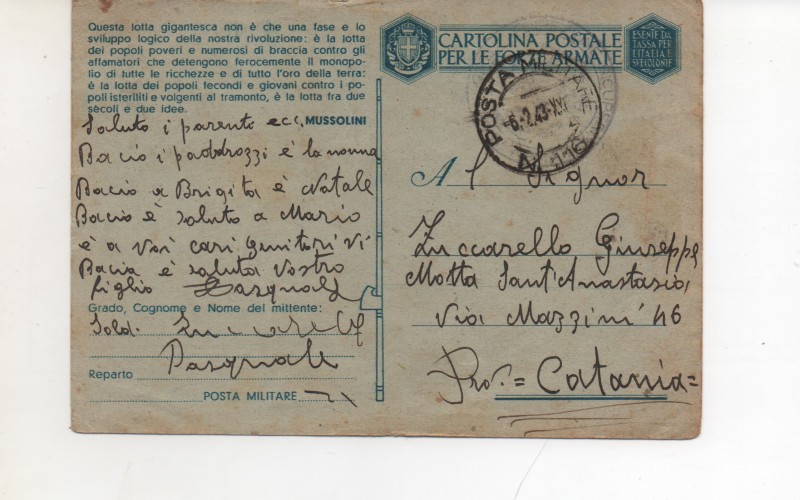 Questa lotta gigantesca non è che una fase e lo
sviluppo logico della nostra rivoluzione: è la lotta
dei popoli poveri e numerosi di braccia contro gli
affamatori che detengono ferocemente il monopo-
lio di tutte le ricchezze e di tutto l'oro della terra:
è la lotta dei popoli fecondi e giovani contro i po-
poli isteriliti e volgenti al tramonto, è la lotta fra due
secoli e due idee.
MUSSOLINI
Saluto i parente ecc.
Bacio i è la nonna
Bacio a Brigita è Natale
Bacio è saluto a Mario
è a voi cari genitori vi
Bacia è saluta vostro
figlio Pasquale
Grado, Cognome e Nome del mittente:
Sold. Zuccarello
Pasquale
Reparto
POSTA MILITARE
CARTOLINA POSTALE
PER LE FORZE ARMATE
ESENTE DA
TASSA PER
L'ITALIA E
SVE COLONIE
POSTA MILITARE
-6.2.43-XXI
A l Signor
Zuccarello Giuseppe
Motta Sant'Anastasia,
Via Mazzini 46
Prov. = Catania =